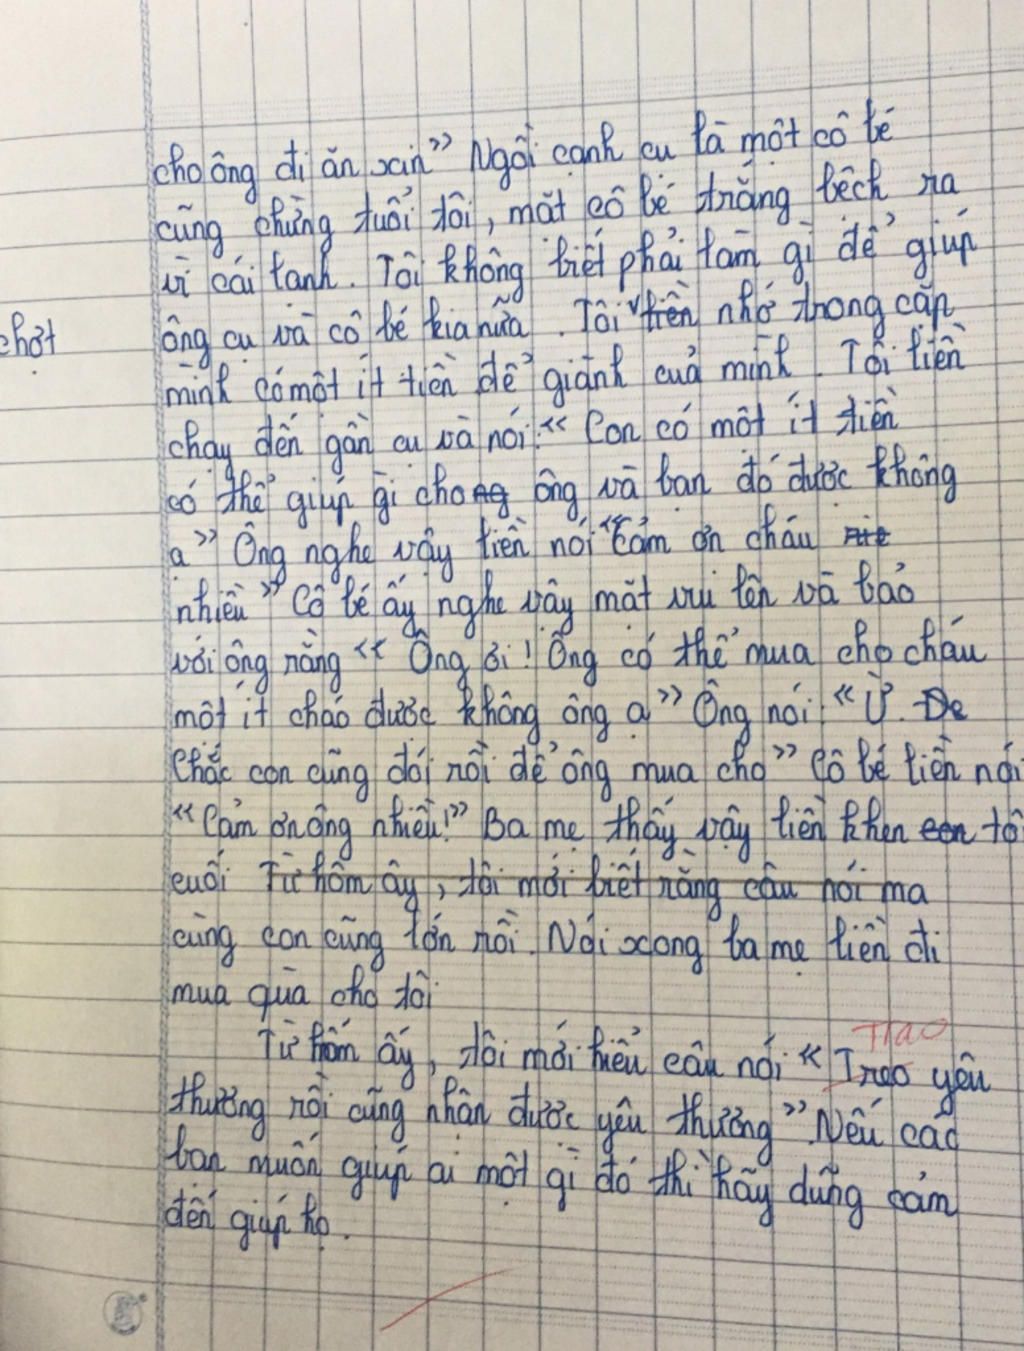 cho ông đi ăn xin" Ngồi cạnh cụ là một cô bé
cũng chừng tuổi tôi, mặt cô bé trắng bệch ra
vì cái lạnh. Tôi không biết phải làm gì để giúp
ông cụ và cô bé kia nữa. Tôi liền nhớ trong cặp
chợt
mình có một ít tiền để giành của mình. Tôi liền
chạy đến gần cụ và nói: "Con có một ít tiền
có thể giúp gì cho ông và bạn đó được không
ạ" Ông nghe vậy liền nói "Cảm ơn cháu
nhiều" Cô bé ấy nghe vậy mặt vui lên và bảo
với ông rằng "Ông ơi! Ông có thể mua cho cháu
một ít cháo được không ông ạ" Ông nói: "Ừ.
Chắc con cũng đói rồi để ông mua cho" Cô bé liền nói
"Cảm ơn ông nhiều!" Ba mẹ thấy vậy liền khen tô
cuối Từ hôm ấy, tôi mới biết rằng câu nói ma
cùng con cũng lớn rồi. Nói xong ba mẹ liền đi
mua quà cho tôi
Từ hôm ấy, tôi mới hiểu câu nói "Treo yêu
Trao
thương rồi cũng nhận được yêu thương" Nếu các
bạn muốn giúp ai một gì đó thì hãy dũng cảm
đến giúp họ.